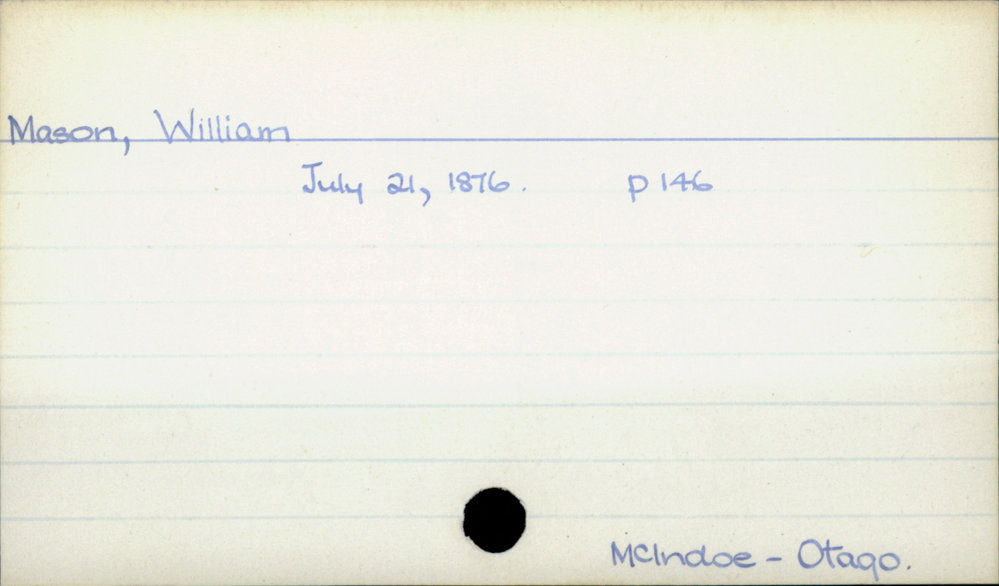 Mason, William
July 21, 1876. p 146
McIndoe - Otago.